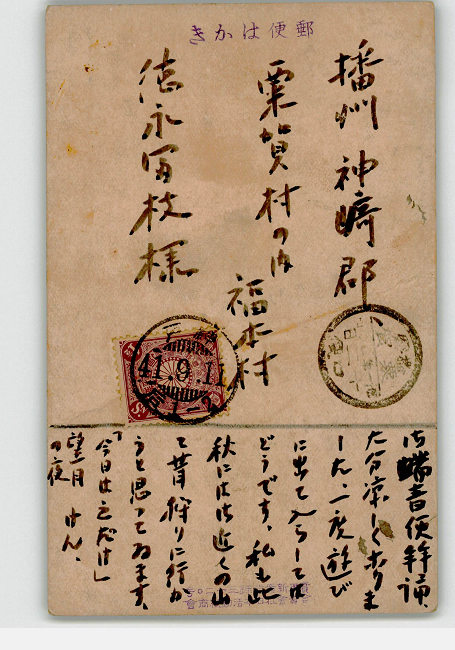 きかは便郵
播州神崎郡
粟賀村の内
福本村
徳永冨枝様
41.9.11
御端書便拝誦、
大分凉しくなりま
した、一度遊び
に出て入らしては
どうです、私も此
秋には御近くの山
て茸狩りに行か
うと思って居ます、
「今日は之だけ」
望月
の夜 けん、